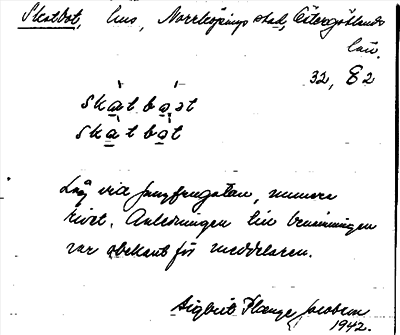 Skatbot, hus, Norrköpings stad, Östergötlands
län.
32, 82
skatbot
skatbot
Låg vid Jungfrugatan, numera
rivet. Anledningen till benämningen
var obekant för meddelaren.
Sigbrit Plænge Jacobson
1942.